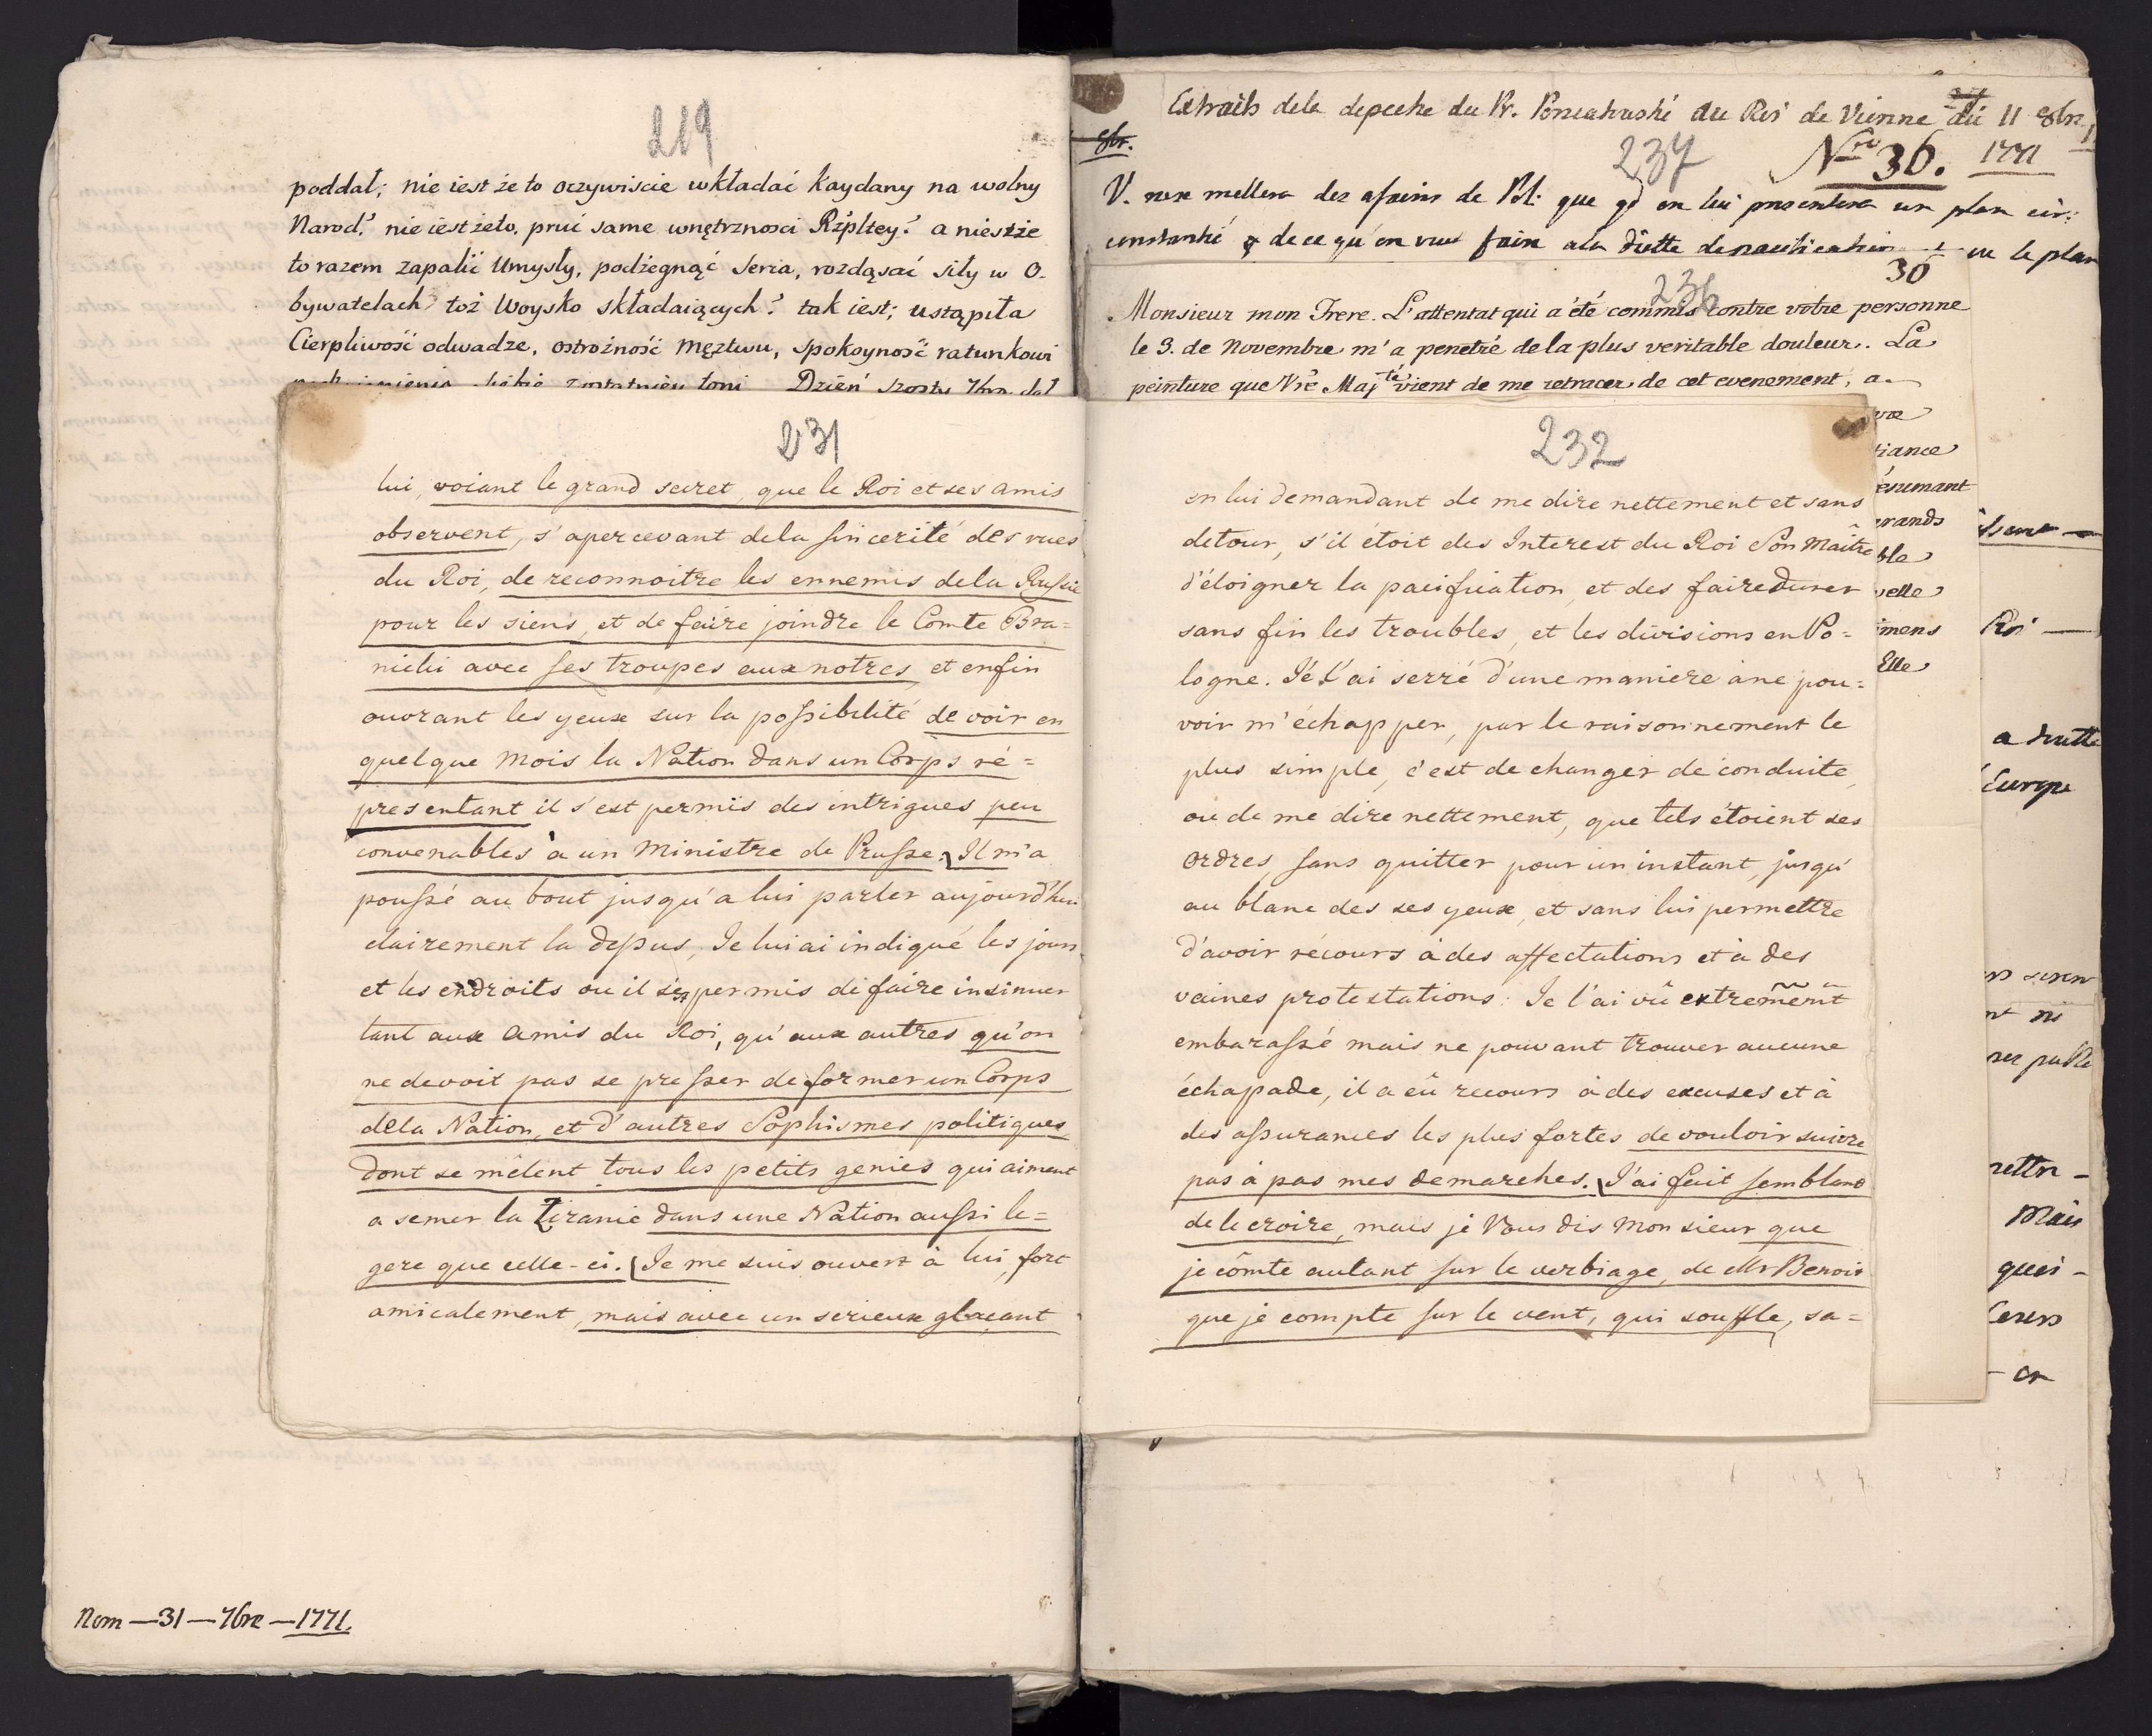 219
poddał; nie iest że to oczywiscie wkładać Kaydany na wolny
Narod? nie iest żeto, pruć same wnętrznosci Rzpltey? a niestże
to razem zapalić Umysły, podżegnąć Seria, rozdąsać siły w O-
bywatelach toż Woysko składaiących? tak iest; ustąpiła
Cierpliwość odwadze, ostrożność męztwu, spokoyność ratunkowi
Dzień szosty 7bra dał
231
lui, voiant le grand secret, que le Roi et ses amis
observent, s'apercevant dela sincerité des vues
du Roi, de reconnoitre les ennemis dela Russie
pour les siens, et de faire joindre le Comte Bra=
nicki avec ses troupes aux notres, et enfin
ouvrant les yeux sur la possibilité de voir en
quelque mois la Nation dans un Corps ré=
presentant il s'est permis des intrigues peu
convenables à un Ministre de Prusse. Il m'a
poussé au bout jusqu'a lui parler aujourd'hui
clairement la dessus, Je lui ai indiqué les jours
et les endroits ou il s'est permis de faire insinuer
tant aux amis du Roi, qu'aux autres qu'on
ne devoit pas se presser de former un Corps
dela Nation, et d'autres Sophismes politiques
dont se mêlent tous les petits genies qui aiment
a semer la Ziranie dans une Nation aussi le=
gere que celle-ci. Je me suis ouvert à lui fort
amicalement, mais avec un serieux glaçant
Nom—31—7bre—1771.
Extraits dela depeche du Pr. Poniatowski au Roi de Vienne du 11 8bre
8br.
237
Nro 36.
1771
V. ne se mellera des afaires de Pol: que qd on lui presentera un plan cir:
constantié & de ce qu'on veut faire a la diette de pacification ou le plan
36
236
Monsieur mon Frere. L'attentat qui a été commis contre votre personne
le 3. de Novembre m'a penetré dela plus veritable douleur. La
peinture que Vre Majté vient de me retracer de cet evenement, a
232
en lui demandant de me dire nettement et sans
detour, s'il étoit des Interest du Roi Son Maître
d'éloigner la pacification, et des faire durer
sans fin les troubles, et les divisions en Po=
logne. Je l'ai serré d'une maniere a ne pou=
voir m'échapper, par le raisonnement le
plus simple, c'est de changer de conduite,
ou de me dire nettement, que tels étoient ses
ordres, sans quitter pour un instant, jusqu'
au blanc des ses yeux, et sans lui permettre
d'avoir récours à des affectations et à des
vaines protestations: Je l'ai vû extremêmt
embarassé mais ne pouvant trouver aucune
échapade, il a eû recours à des excuses et à
des assurances les plus fortes de vouloir suivre
pas à pas mes demarches. J'ai fait semblant
de le croire, mais je Vous dis Monsieur que
je cômte autant sur le verbiage, de Mr Benoit
que je compte sur le vent, qui souffle, sa=
tiance
ésumant
rands
ble
velle
imens
Elle
Roi —
Europe
Mais